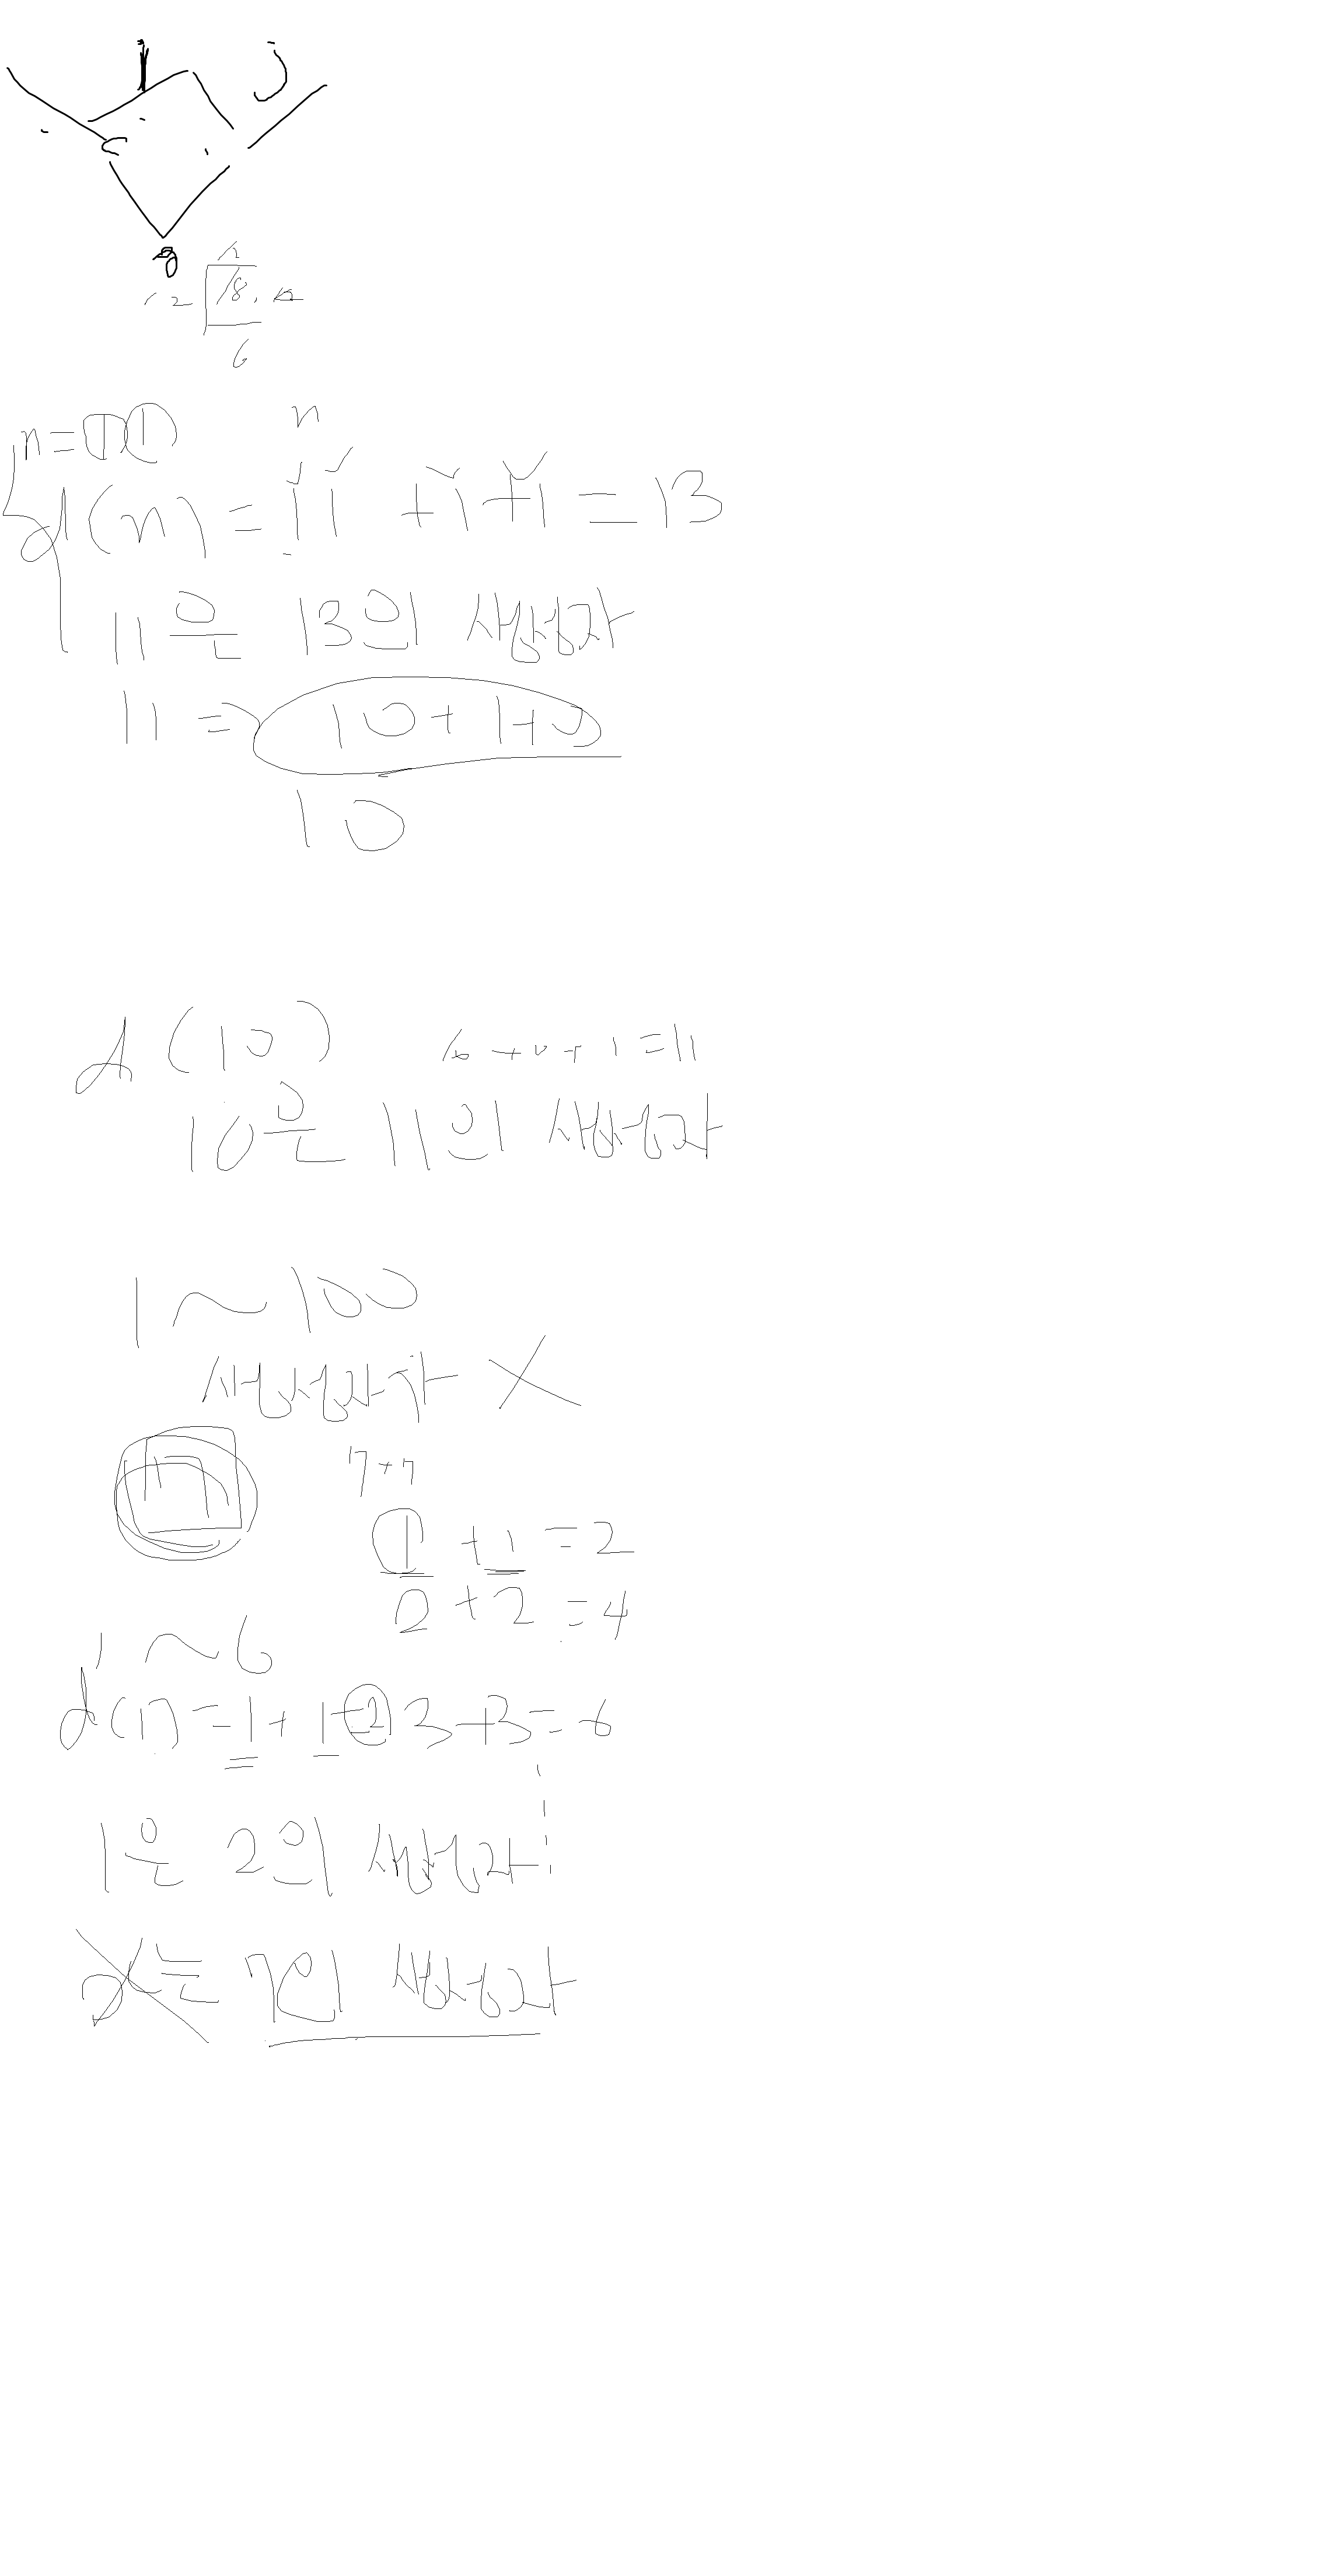 n = 11
n
d(n) = 11 + 1 + 1 = 13
11은 13의 생성자
11 => 10 + 1 + 0
10
d(10) 10 + 0 + 1 = 11
10은 11의 생성자
1 ~ 100
생성자가 X
7 + 7
1 + 1 = 2
2 + 2 = 4
1 ~ 6
d(1) = 1 + 1 = 2 3 + 3 = 6
1은 2의 생성자
는 7의 생성자